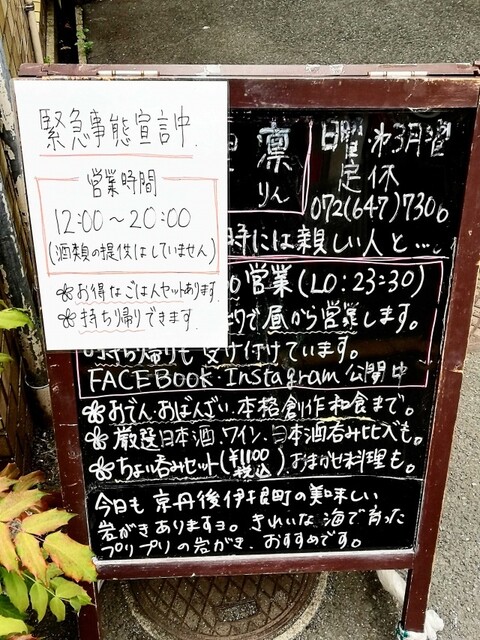 緊急事態宣言中
営業時間
12:00～20:00
(酒類の提供はしていません)
お得なごはんセットあります
持ち帰りできます
凛
りん
日曜・第3月曜
定休
072(647)7300
時には親しい人と…
営業(LO:23:30)
で昼から営業します。
持ち帰りも受け付けています。
FACEBook・Instagram公開中
おでん、おばんざい、本格創作和食まで。
厳選日本酒、ワイン、日本酒呑み比べも。
ちょい呑みセット(¥1100税込)、おまかせ料理も。
今日も京丹後伊根町の美味しい
岩がきありますヨ。きれいな海で育った
プリプリの岩がき、おすすめです。